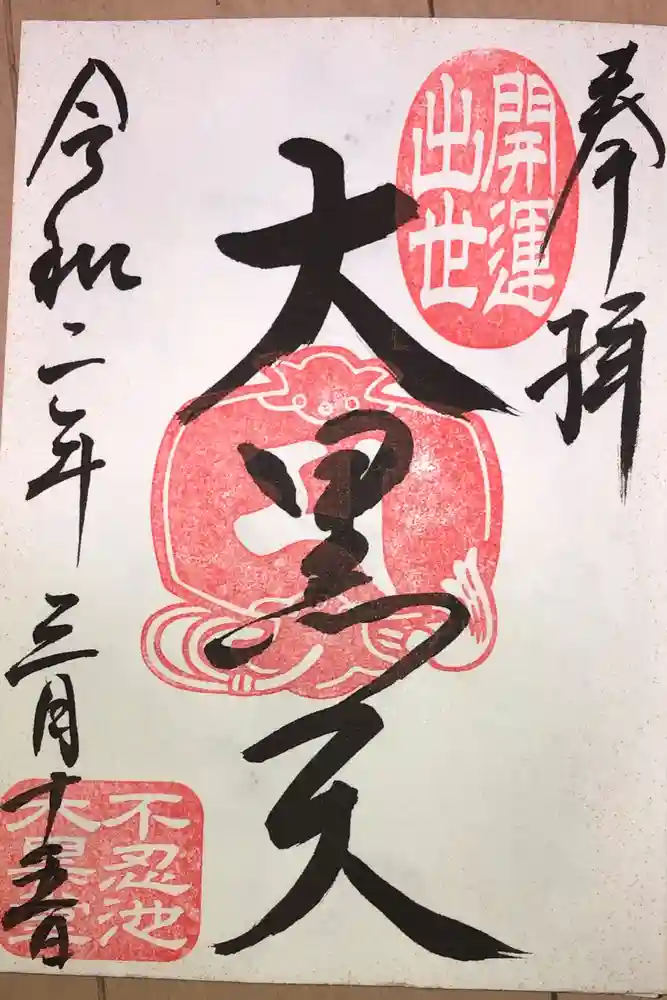 奉拝
開運
出世
大黒天
不忍池
大黒堂
令和二年三月十五日